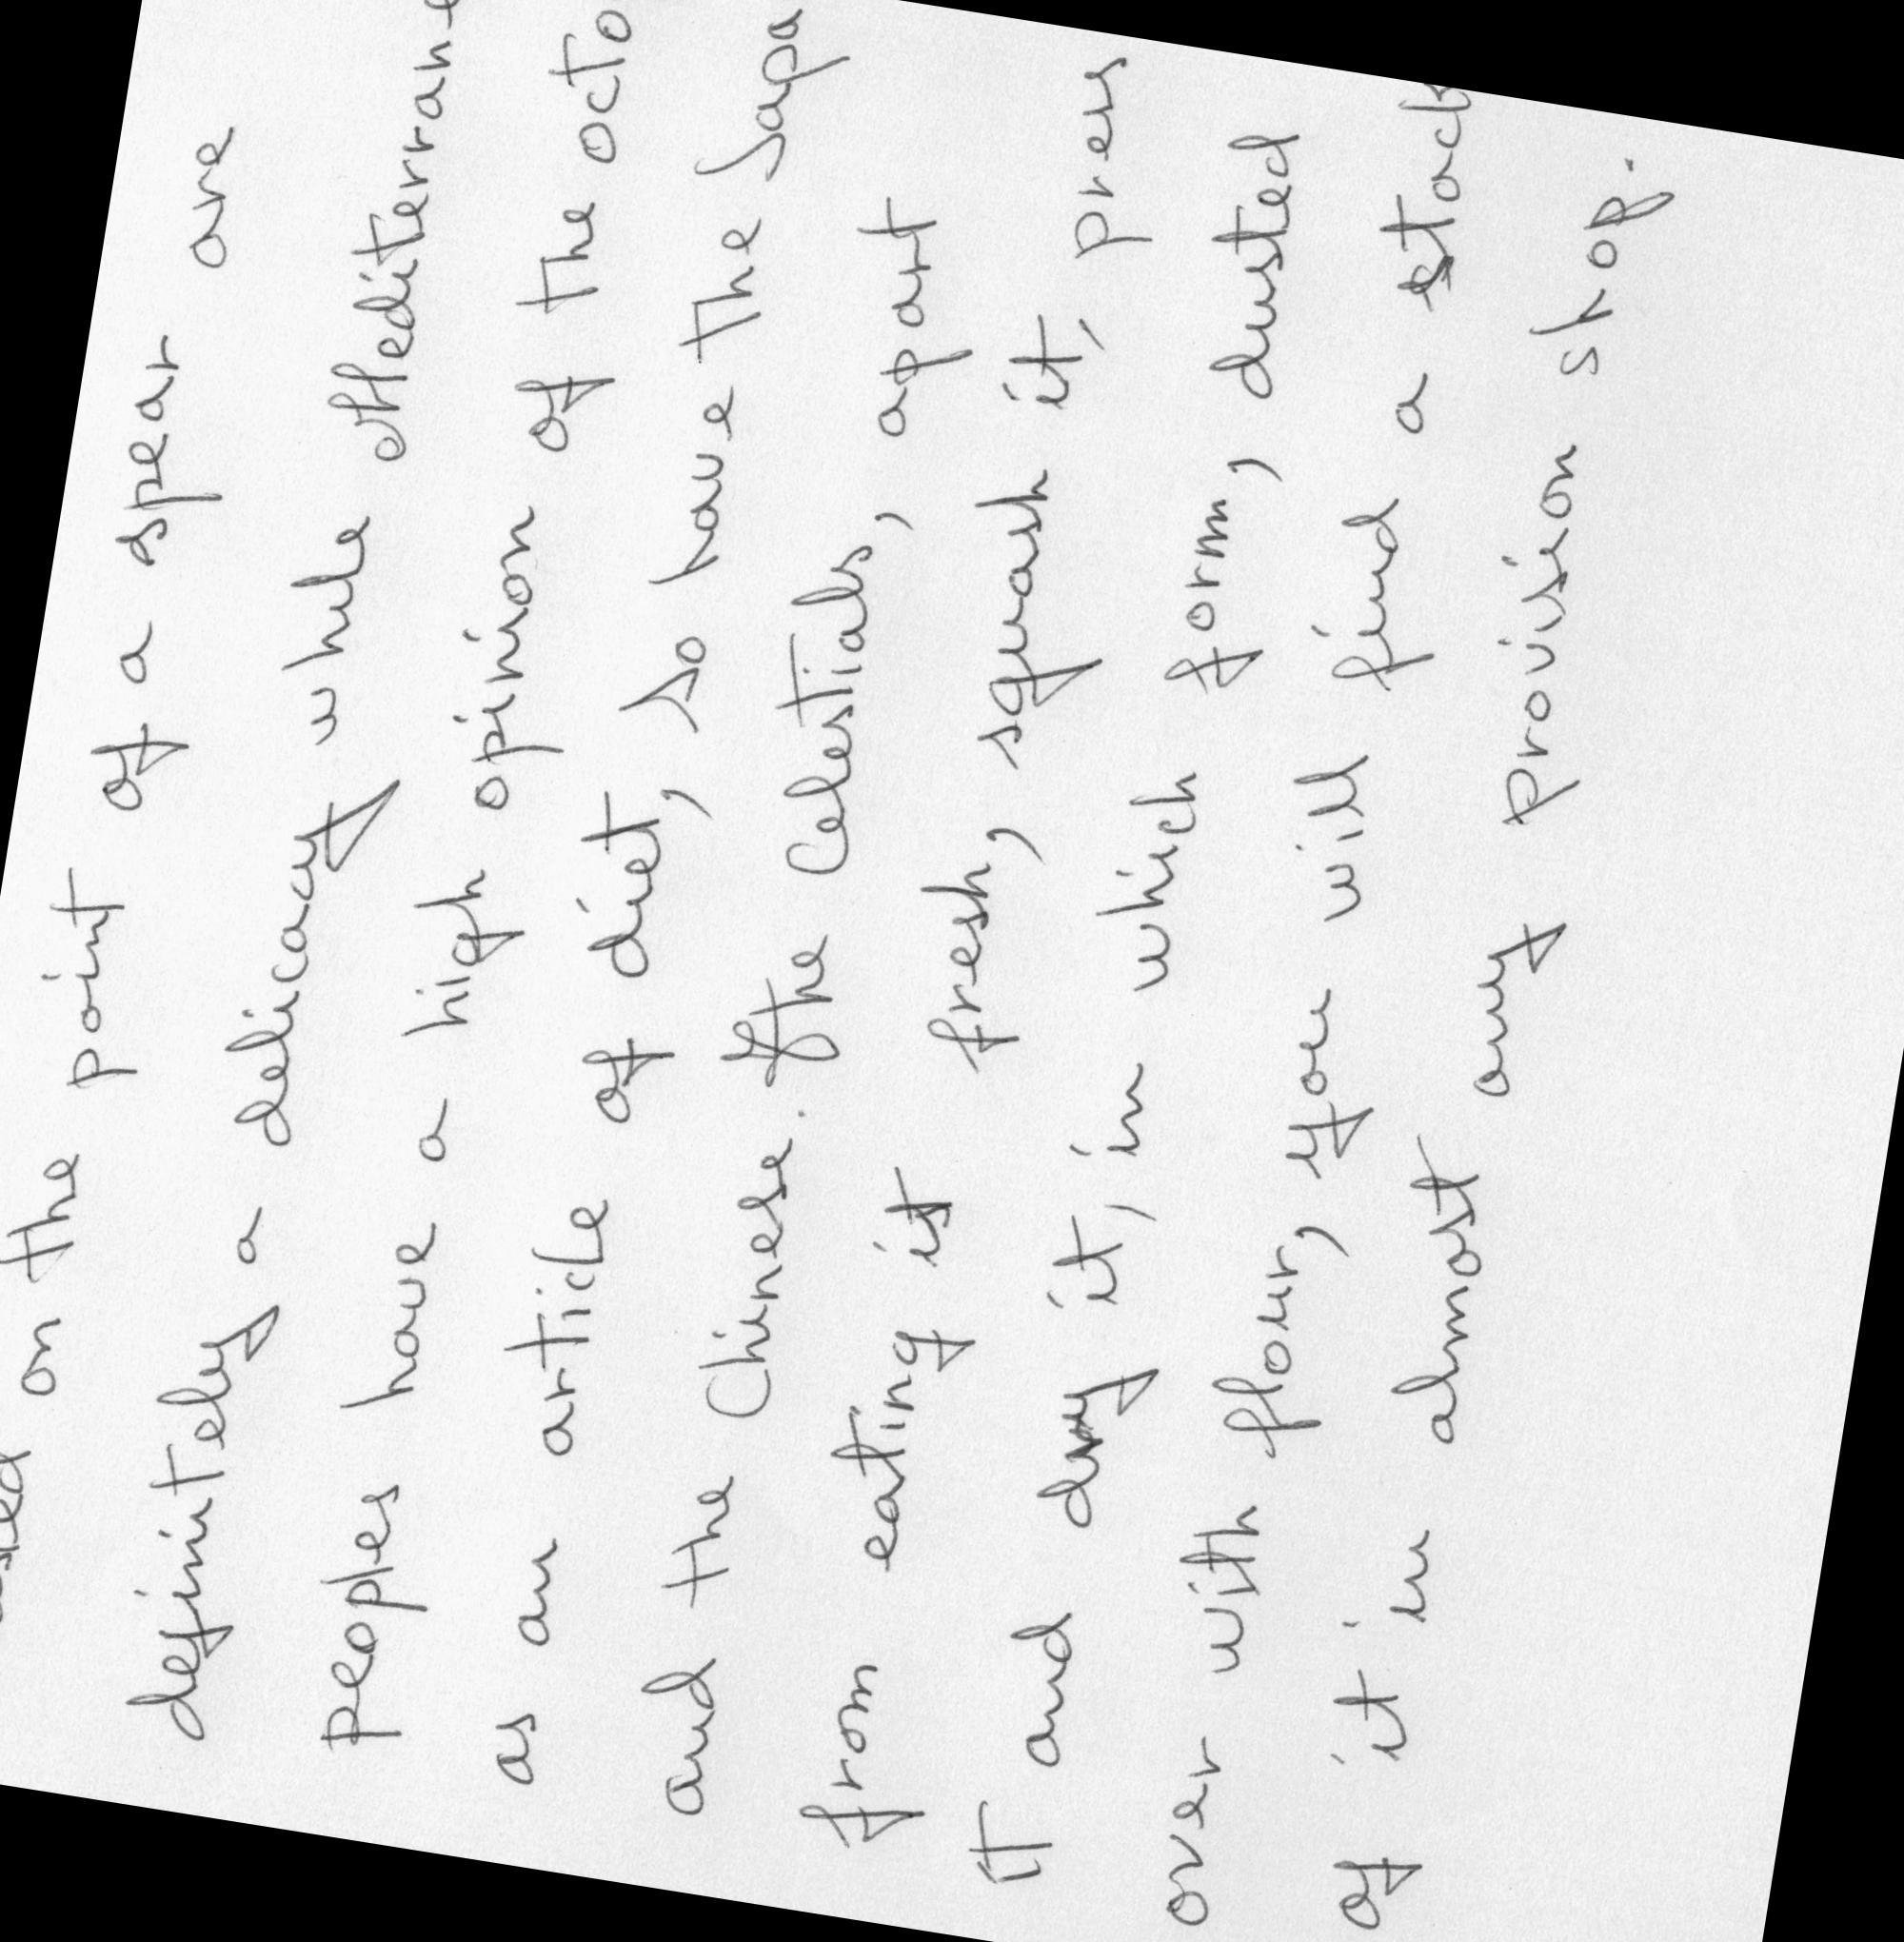 on the point of a spear are
definitely a delicacy while Mediterrane
peoples have a high opinion of the octo
as an article of diet, so have the Japa
and the Chinese. The Celestials, apart
from eating it fresh, squash it, pres
it and dry it, in which form, dusted
over with flour, you will find a stock
of it in almost any provision shop.